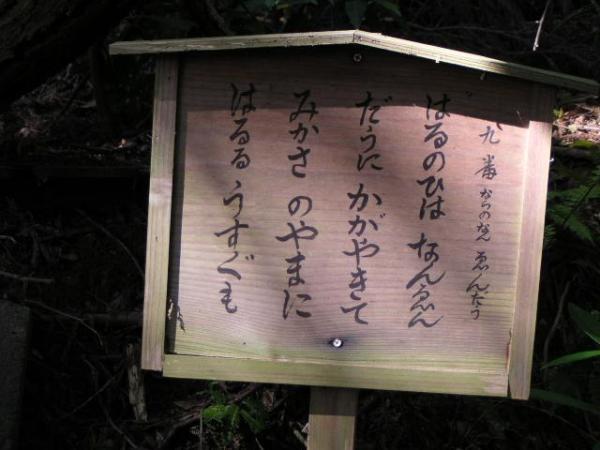 九番 ならのなん ゑんだう
はるのひは なんゑん
だうに かがやきて
みかさ のやまに
はるる うすぐも